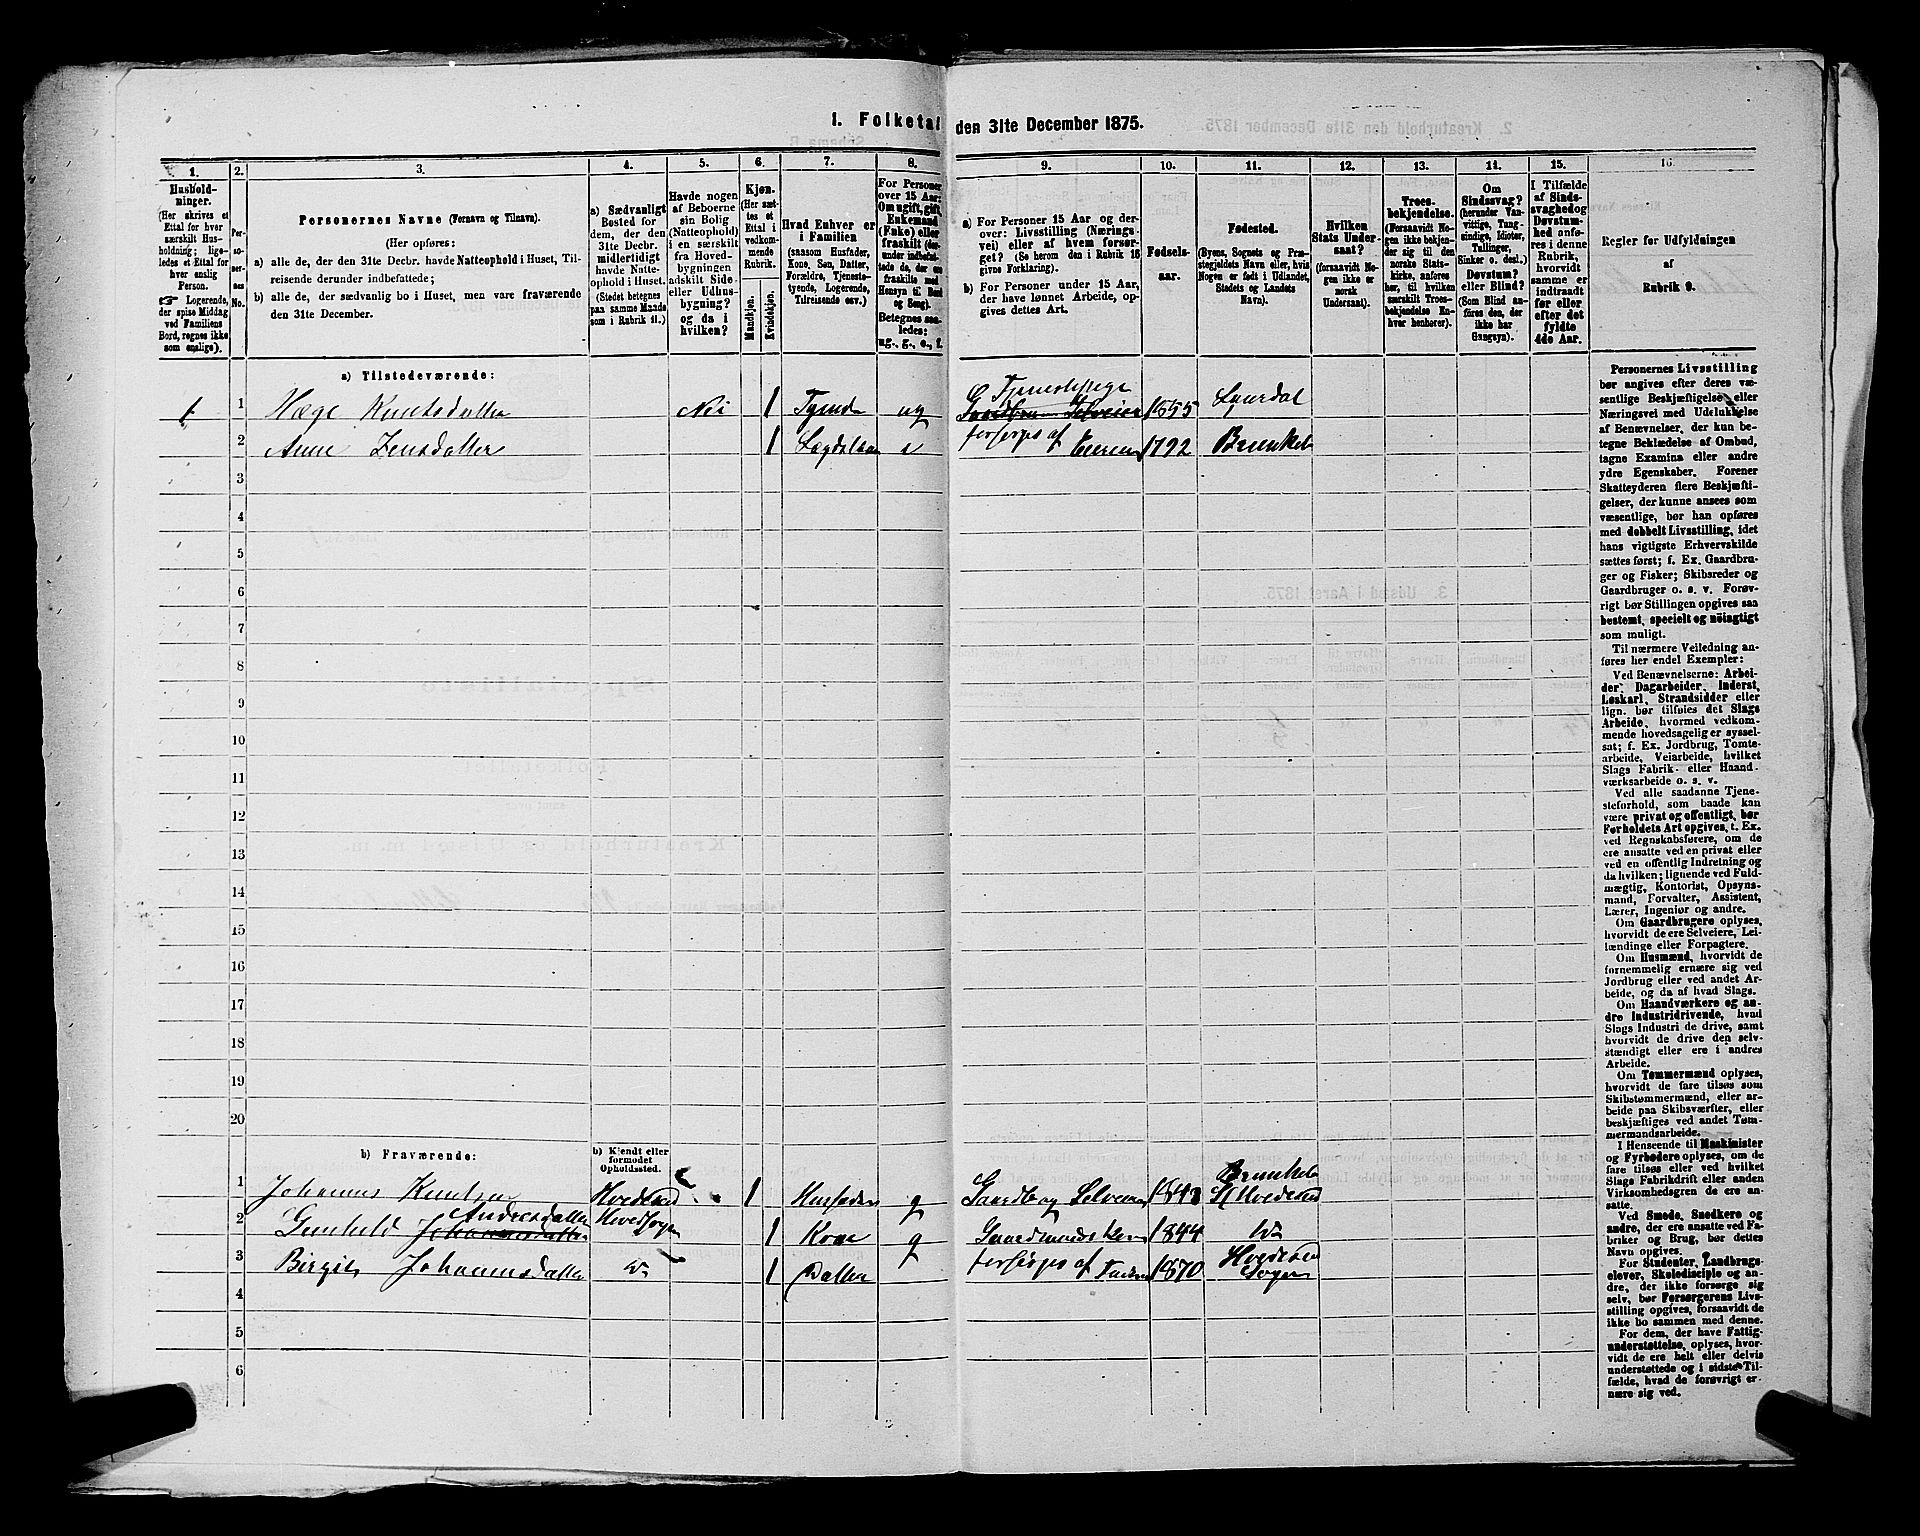 1. Folketal den 31te December 1875.
1.
Hushold-
ninger.
(Her skrives et
Ettal for hver
særskilt Hus-
holdning; lige-
ledes et Ettal for
hver enslig
Person.
☞ Logerende,
der spise Middag
ved Familiens
Bord, regnes ikke
som enslige).
2.
Per-
so-
ner-
nes
No.
3.
Personernes Navne (Fornavn og Tilnavn).
(Her opføres:
a) alle de, der den 31te Decbr. havde Natteophold i Huset, Til-
reisende derunder indbefattede;
b) alle de, der sædvanlig bo i Huset, men vare fraværende
den 31te December.
4.
a) Sædvanligt
Bosted for
dem, der den
31te Decbr.
midlertidigt
havde Natte-
ophold i Huset.
(Stedet betegnes
paa samme Maade
som i Rubrik 11.)
5.
Havde nogen
af Beboerne
sin Bolig
(Natteophold)
i en særskilt
fra Hoved-
bygningen
adskilt Side-
eller Udhus-
bygning?
og da i
hvilken?
6.
Kjøn.
(Her sæt-
tes et
Ettal i
vedkom-
mende
Rubrik.
Mandkjøn.
Kvindekjøn.
7.
Hvad Enhver er
i Familien
(saasom Husfader,
Kone, Søn, Datter,
Forældre, Tjeneste-
tyende, Logerende,
Tilreisende osv.)
8.
For Personer
over 15 Aar:
Om ugift, gift,
Enkemand
(Enke) eller
fraskilt
Betegnes saa-
ledes:
ug., g., e., f.
9.
a) For Personer 15 Aar og der-
over: Livsstilling (Nærings-
vei) eller af hvem forsør-
get? (Se herom den i Rubrik 16
givne Forklaring).
b) For Personer under 15 Aar,
der have lønnet Arbeide, op-
gives dettes Art.
10.
Fødsels-
aar.
11.
Fødested.
(Byens, Sognets og Præ-
stegjeldets Navn eller, hvis
Nogen er født i Udlandet,
Stedets og Landets
Navn).
12.
Hvilken
Stats Under-
saat?
(forsaavidt No-
gen ikke er
norsk
Undersaat).
13.
Troes-
bekjendelse.
(Forsaavidt No-
gen ikke bekjen-
der sig til den
norske Stats-
kirke, anføres
her, til hvilken
særskilt Troes-
bekjendelse En-
hver henhører).
14.
Om
Sindssvag?
(herunder Van-
vittige, Tung-
sindige, Idioter,
Tullinger,
Sinker o. desl.).
Døvstum?
eller Blind?
(Som Blind an-
føres den, der
ikke har
Gangsyn).
15.
I Tilfælde
af Sinds-
svaghed og
Døvstum-
hed anfø-
res i denne
Rubrik,
hvorvidt
samme er
indtraadt
før eller
efter det
fyldte
4de Aar.
16.
Regler for Udfyldningen
af
Rubrik 9.
a) Tilstedeværende:
1 1 Hæge Knutsdatter Nei 1 Tyende ug G Tjenestepige
Gaardbru Selveier 1855 Laurdal
2 Anne Jensdatter 1 e forsørges af Eieren 1792 Brunkeb
3
4
5
6
7
8
9
10
11
12
13
14
15
16
17
18
19
20
b) Fraværende:
b) Kjendt eller
formodet
Opholdssted.
1 Johannes Knutsen Hvedesed 1 Husfader g Gaardbrg Selveier 1843 Brunkeb
Hvidesed
2 Gunhild Johannesdatter Andersdatter Hvedsogn 1 Kone g Gaardmands Kone 1844
3 Birgit Johannesdatter 1 Datter forsørges af Faderen 1870 Hvidesed
Sogn
4
5
6
Personernes Livsstilling
bør angives efter deres væ-
sentlige Beskjæftigelse eller
Næringsvei med Udelukkelse
af Benævnelser, der kun be-
tegne Beklædelse af Ombud,
tagne Examina eller andre
ydre Egenskaber. Forener
Skatteyderen flere Beskjæfti-
gelser, der kunne ansees som
væsentlige, bør han opføres
med dobbelt Livsstilling, idet
hans vigtigste Erhvervskilde
sættes først; f. Ex. Gaardbru-
ger og Fisker; Skibsreder og
Gaardbruger o. s. v. Forøv-
rigt bør Stillingen opgives saa
bestemt, specielt og nöiagtigt
som muligt.
Til nærmere Veiledning an-
føres her endel Exempler:
Ved Benævnelserne: Arbei-
der, Dagarbeider, Inderst,
Løskarl, Strandsidder eller
lign. bør tilføies det Slags
Arbeide, hvormed vedkom-
mende hovedsagelig er syssel-
sat; f. Ex. Jordbrug, Tomte-
arbeide, Veiarbeide, hvilket
Slags Fabrik- eller Haand-
værksarbeide o. s. v.
Ved alle saadanne Tjene-
steforhold, som baade kan
være privat og offentligt, bør
Forholdets Art opgives, t. Ex.
ved Regnskabsførere, om de
ere ansatte ved en privat eller
ved en offentlig Indretning og
da hvilken; lignende ved Fuld-
mægtig, Kontorist, Opsyns-
mand, Forvalter, Assistent,
Lærer, Ingeniør og andre.
Om Gaardbrugere oplyses,
hvorvidt de ere Selveiere, Lei-
lændinge eller Forpagtere.
Om Husmænd, hvorvidt de
fornemmelig ernære sig ved
Jordbrug eller ved andet Ar-
beide, og da af hvad Slags.
Om Haandværkere og an-
dre Industridrivende, hvad
Slags Industri de drive, samt
hvorvidt de drive den selv-
stændigt eller ere i andres
Arbeide.
Om Tømmermænd oplyses,
hvorvidt de fare tilsøs som
Skibstømmermænd, eller ar-
beide paa Skibsværfter, eller
beskjæftiges ved andet Tøm-
mermandsarbeide.
I Henseende til Maskinister
og Fyrbødere oplyses, om de
fare tilsøs eller ved hvilket
Slags Fabrikdrift eller anden
Virksomhedsgren de ere an-
satte.
Ved Smede, Snedkere og
andre, der ere ansatte ved Fa-
briker og Brug, bør dettes
Navn opgives.
For Studenter, Landbrugs-
elever, Skoledisciple og an-
dre, der ikke forsørge sig
selv, bør Forsørgerens Livs-
stilling opgives, forsaavidt de
ikke bo sammen med denne.
For dem, der have Fattig-
understøttelse, oplyses, hvor-
vidt de ere helt eller delvis
understøttede og i sidste Til-
fælde, hvad de forøvrigt er-
nære sig ved.